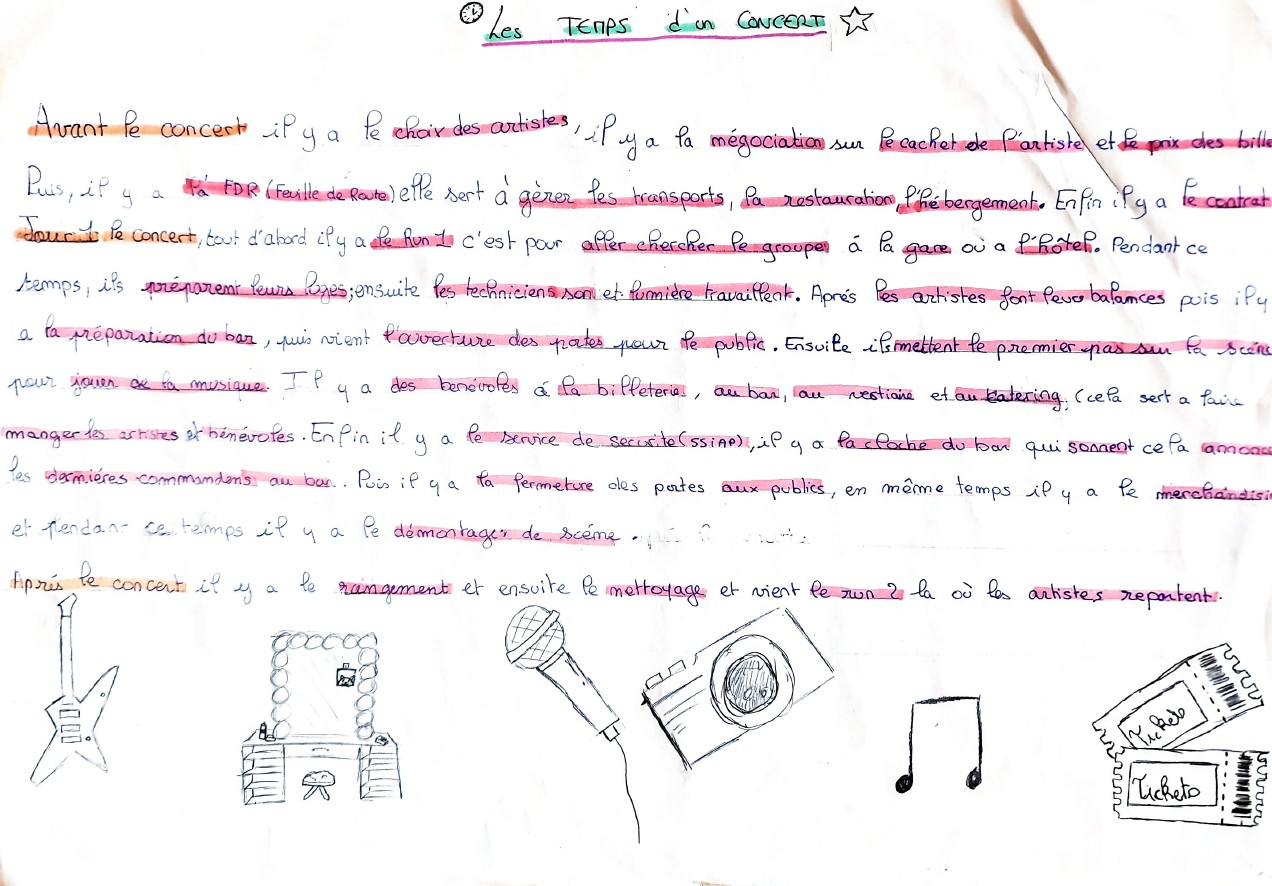 Les TEMPS d'un CONCERT
Avant le concert il y a le choix des artistes, il y a la mégociation sur le cachet de l'artiste et le prix des bille
Puis, il y a la FDR (Feuille de Route) elle sert à gèrer les transports, la restauration, l'hébergement. Enfin il y a le contrat
Jour 1 le concert, tout d'abord il y a le Run 1 c'est pour aller chercher le groupe á la gare où a l'hôtel. Pendant ce
temps, ils préparent leurs loges; ensuite les techniciens son et lumière travaillent. Aprés les artistes font leurs balances puis il y
a la préparation du bar, puis vient l'ouverture des portes pour le public. Ensuite ils mettent le premier pas sur la scéne
pour jouer de la musique. Il y a des benévoles á la billeterie, au bar, au vestiaire et au catering, (cela sert a faire
manger les artistes et bénévoles. Enfin il y a le service de securité (SSIAP), il y a la cloche du bar qui sonnent cela annonce
les derniéres commandens au bar. Puis il y a la fermeture des portes aux publics, en même temps il y a le merchandisi
et pendant ce temps il y a le démontager de scéne.
Aprés le concert il y a le rangement et ensuite le mettoyage et vient le run 2 la où les artistes repartent.
Tickets
Tickets